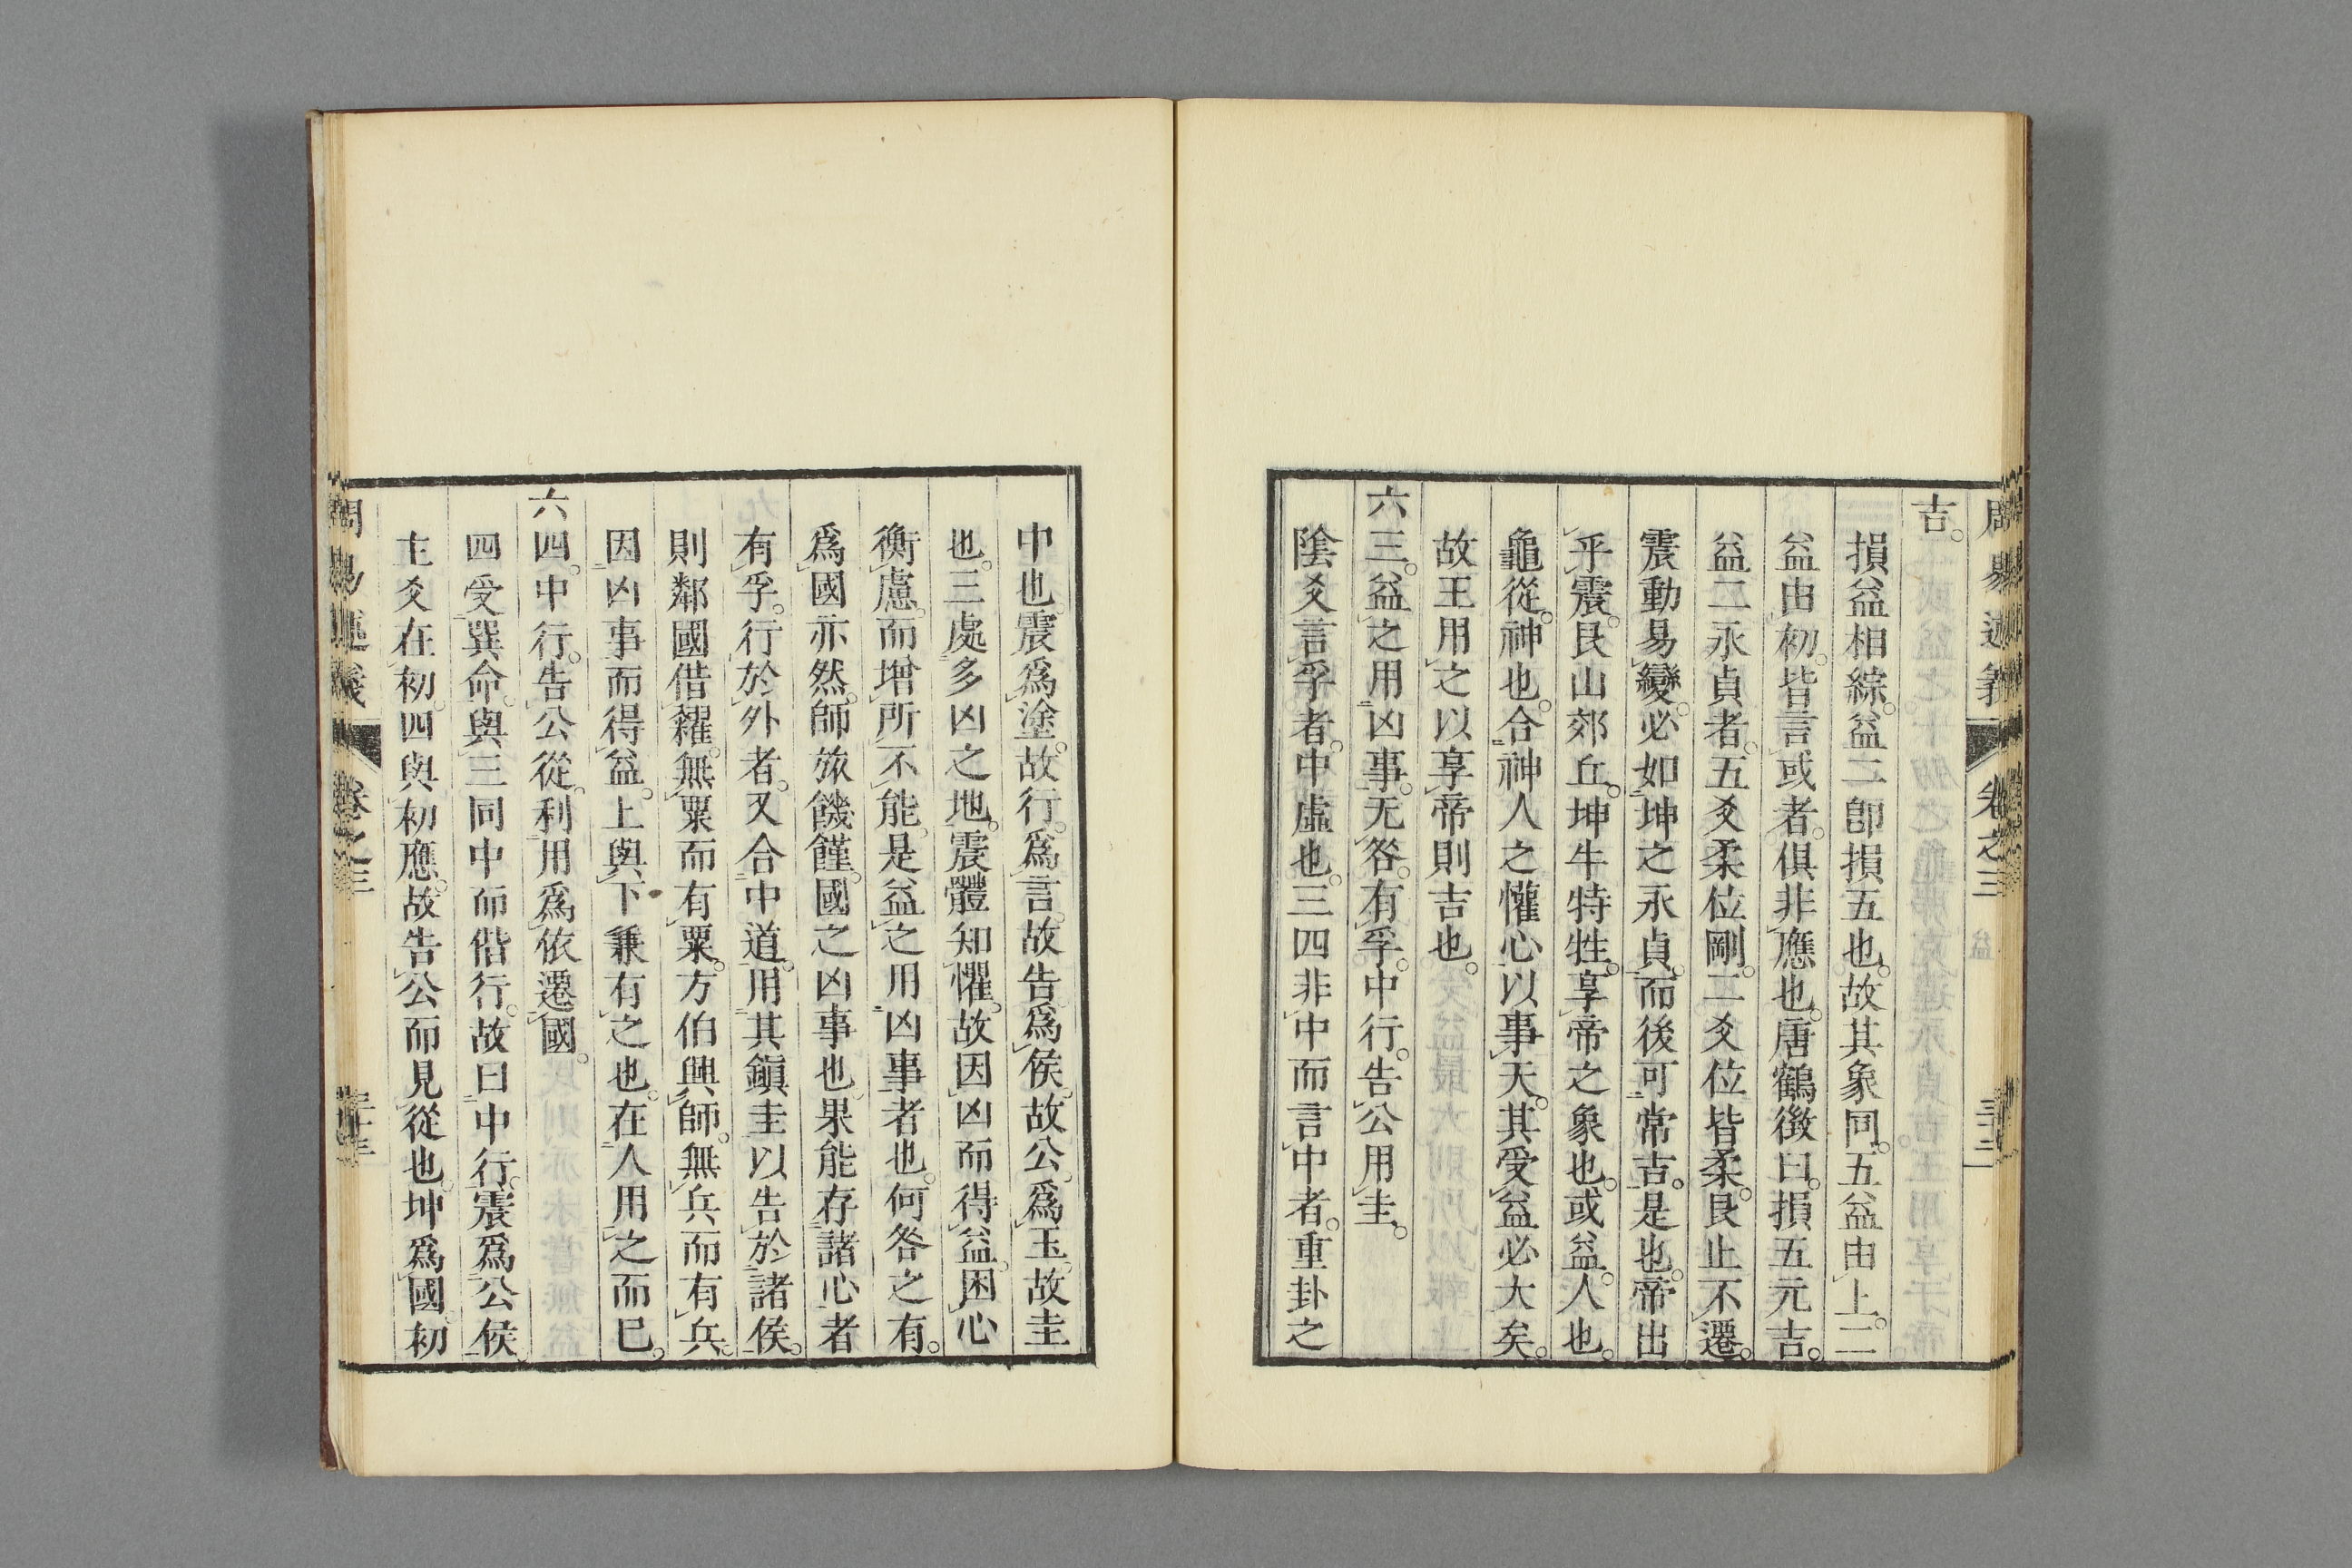 周易述義 卷之三 益
吉。
損益相綜。益二卽損五也。故其象同。五益由上。二
益由初。皆言或者。俱非應也。唐鶴徵曰。損五元吉。
益二永貞者。五爻柔位剛。二爻位皆柔。艮止不遷。
震動易變。必如坤之永貞。而後可常吉。是也。帝出
乎震。艮山郊丘。坤牛特牲。享帝之象也。或益。人也。
龜從。神也。合神人之懽心以事天。其受益必大矣。
故王用之以享帝則吉也。
六三。益之用凶事。无咎。有孚。中行。告公用圭。
陰爻言孚者。中虛也。三四非中而言中者。重卦之
中也震爲塗。故行。爲言。故告。爲侯。故公。爲玉。故圭
也。三處多凶之地。震體知懼。故因凶而得益。困心
衡慮。而增所不能。是益之用凶事者也。何咎之有。
爲國亦然。師旅饑饉。國之凶事也。果能存諸心者
有孚。行於外者。又合中道。用其鎭圭以告於諸侯。
則鄰國借糴。無粟而有粟。方伯興師。無兵而有兵。
因凶事而得益。上與下兼有之也。在人用之而已。
六四。中行。告公從。利用爲依遷國。
四受巽命。與三同中而偕行。故曰中行。震爲公侯。
主爻在初。四與初應。故告公而見從也。坤爲國。初
周易述義 卷之三